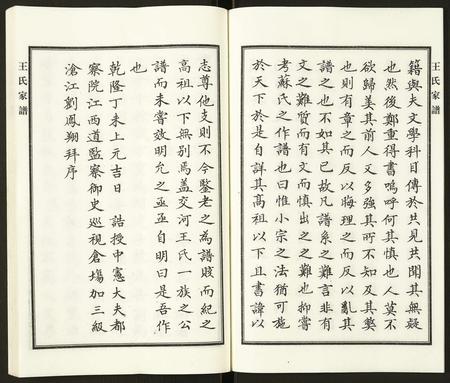 王氏家譜
籍與夫文學科目傳於共見共聞其無疑
也然後鄭重得書嗚呼何其慎也人莫不
欲歸美其前人文多強其所不知及其獘
也則有章之而反以晦理之而反以亂其
譜之也不如其已故凡譜系之難言非有
文之難質而有文而慎出之之難也抑嘗
考蘇氏之作譜也曰惟小宗之法猶可施
於天下於是自詳其高祖以下且書諱以
志尊他支則不今鑒老之為譜賅而紀之
高祖以下無別焉蓋交河王氏一族之公
譜而未嘗效明允之亟亟自明曰是吾作
也
乾隆丁未上元吉日 誥授中憲大夫都
察院江西道監察御史巡視倉場加三級
滄江劉鳳翔拜序
王氏家譜